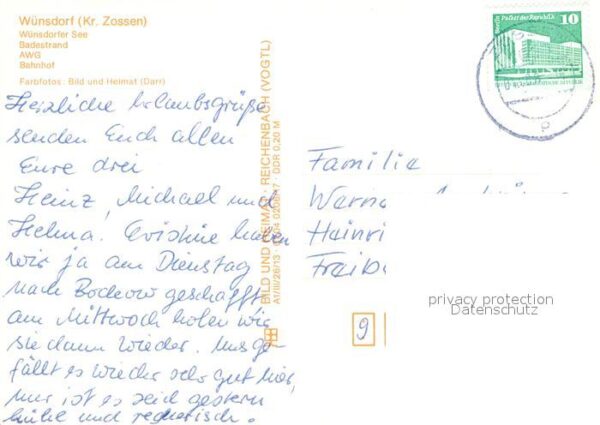 Wünsdorf (Kr. Zossen)
Wünsdorfer See
Badestrand
AWG
Bahnhof
Farbfotos: Bild und Heimat (Darr)
Herzliche Urlaubsgrüße
senden Euch allen
Eure drei
Heinz, Michael und
Helma. Cristine haben
wir ja am Dienstag
nach Bockow geschafft
am Mittwoch holen wir
sie dann wieder. Uns ge-
fällt es wieder sehr gut hier,
nur ist es seid gestern
kühle und regnerisch.
BILD UND HEIMAT · REICHENBACH (VOGTL)
A1/III/26/13 DDR 0,20 M
Berlin Palast der Republik
10
Familie
Heinri
Freib
9
privacy protection
Datenschutz